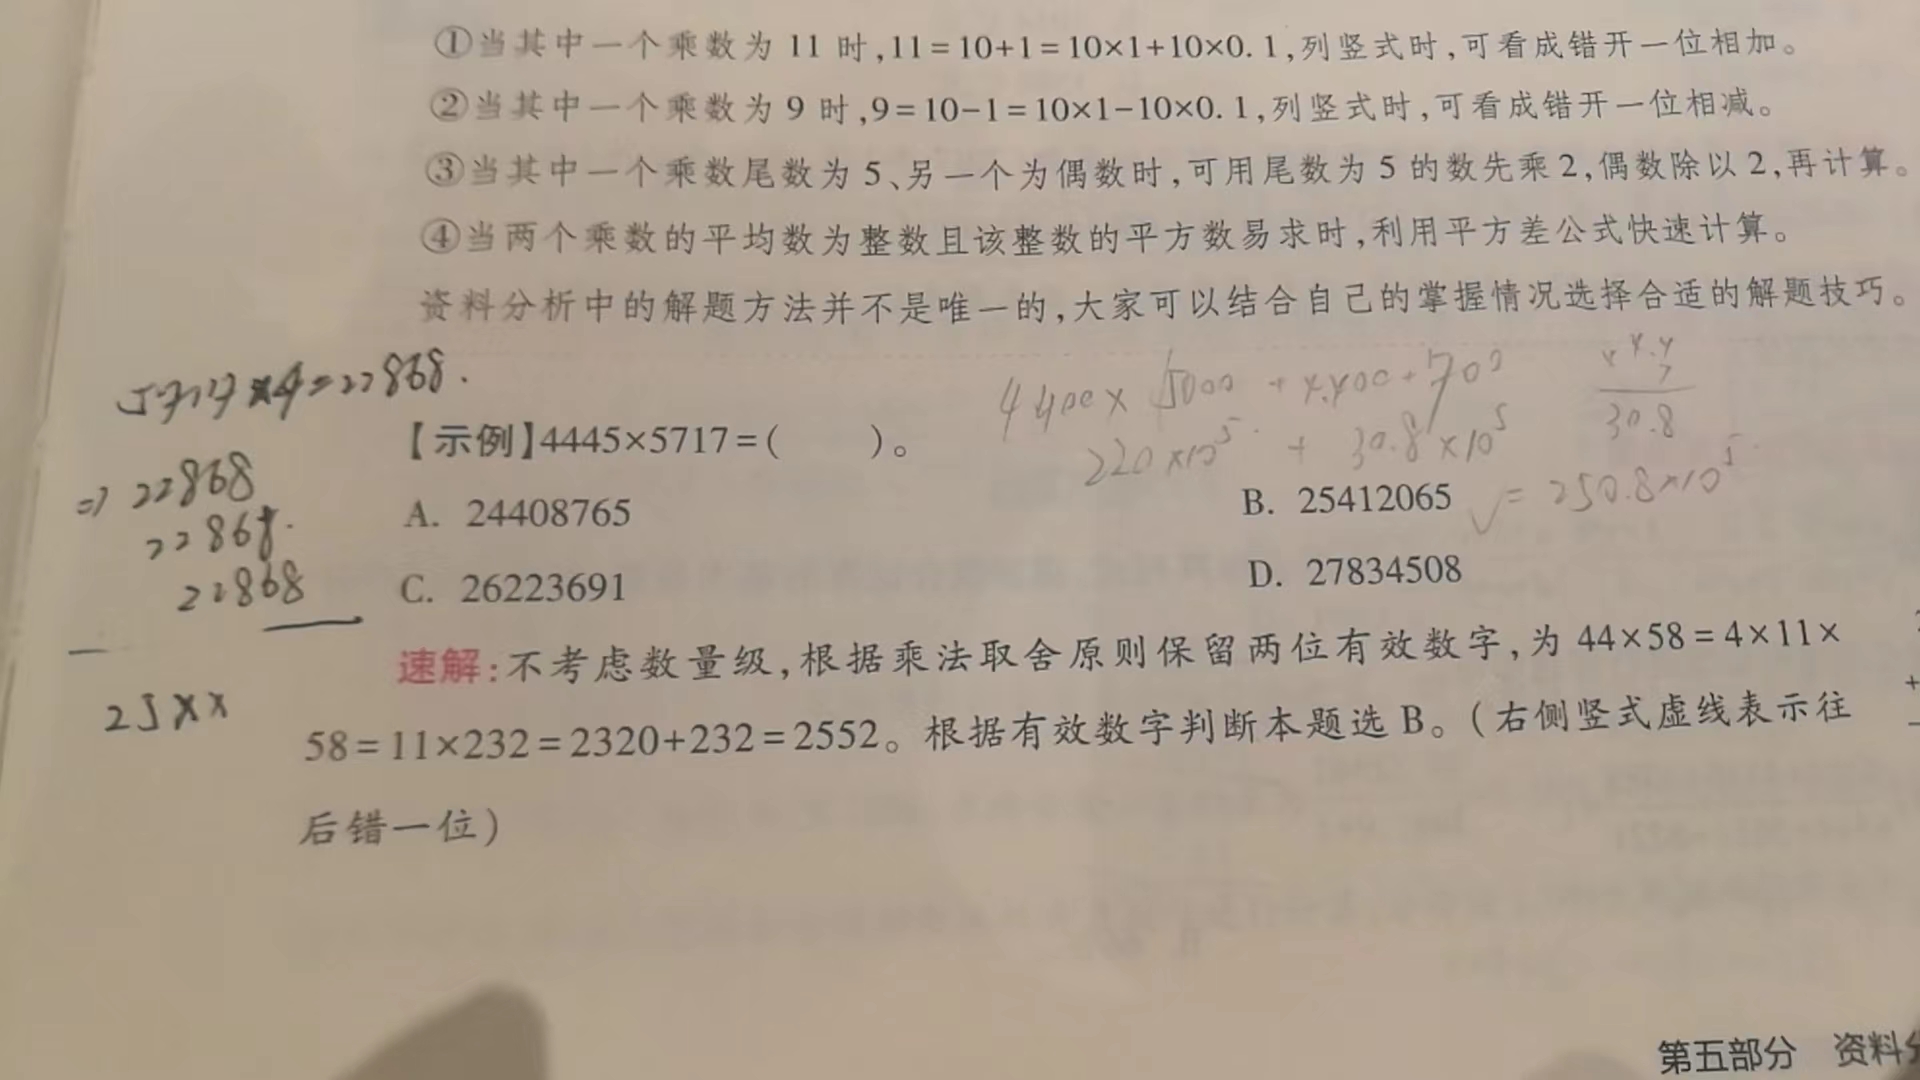 ①当其中一个乘数为 11 时,11=10+1=10×1+10×0.1,列竖式时,可看成错开一位相加。
②当其中一个乘数为 9 时,9=10-1=10×1-10×0.1,列竖式时,可看成错开一位相减。
③当其中一个乘数尾数为 5、另一个为偶数时,可用尾数为 5 的数先乘 2,偶数除以 2,再计算。
④当两个乘数的平均数为整数且该整数的平方数易求时,利用平方差公式快速计算。
资料分析中的解题方法并不是唯一的,大家可以结合自己的掌握情况选择合适的解题技巧。
5717×4=22868.
4400×5000+4400×700
30.8
【示例】4445×5717=(  )。
220×10⁵+30.8×10⁵
=250.8×10⁵
⇒22868
22868
22868
25××
A. 24408765
B. 25412065 √
C. 26223691
D. 27834508
速解:不考虑数量级,根据乘法取舍原则保留两位有效数字,为 44×58=4×11×
58=11×232=2320+232=2552。根据有效数字判断本题选 B。(右侧竖式虚线表示往
后错一位)
第五部分 资料